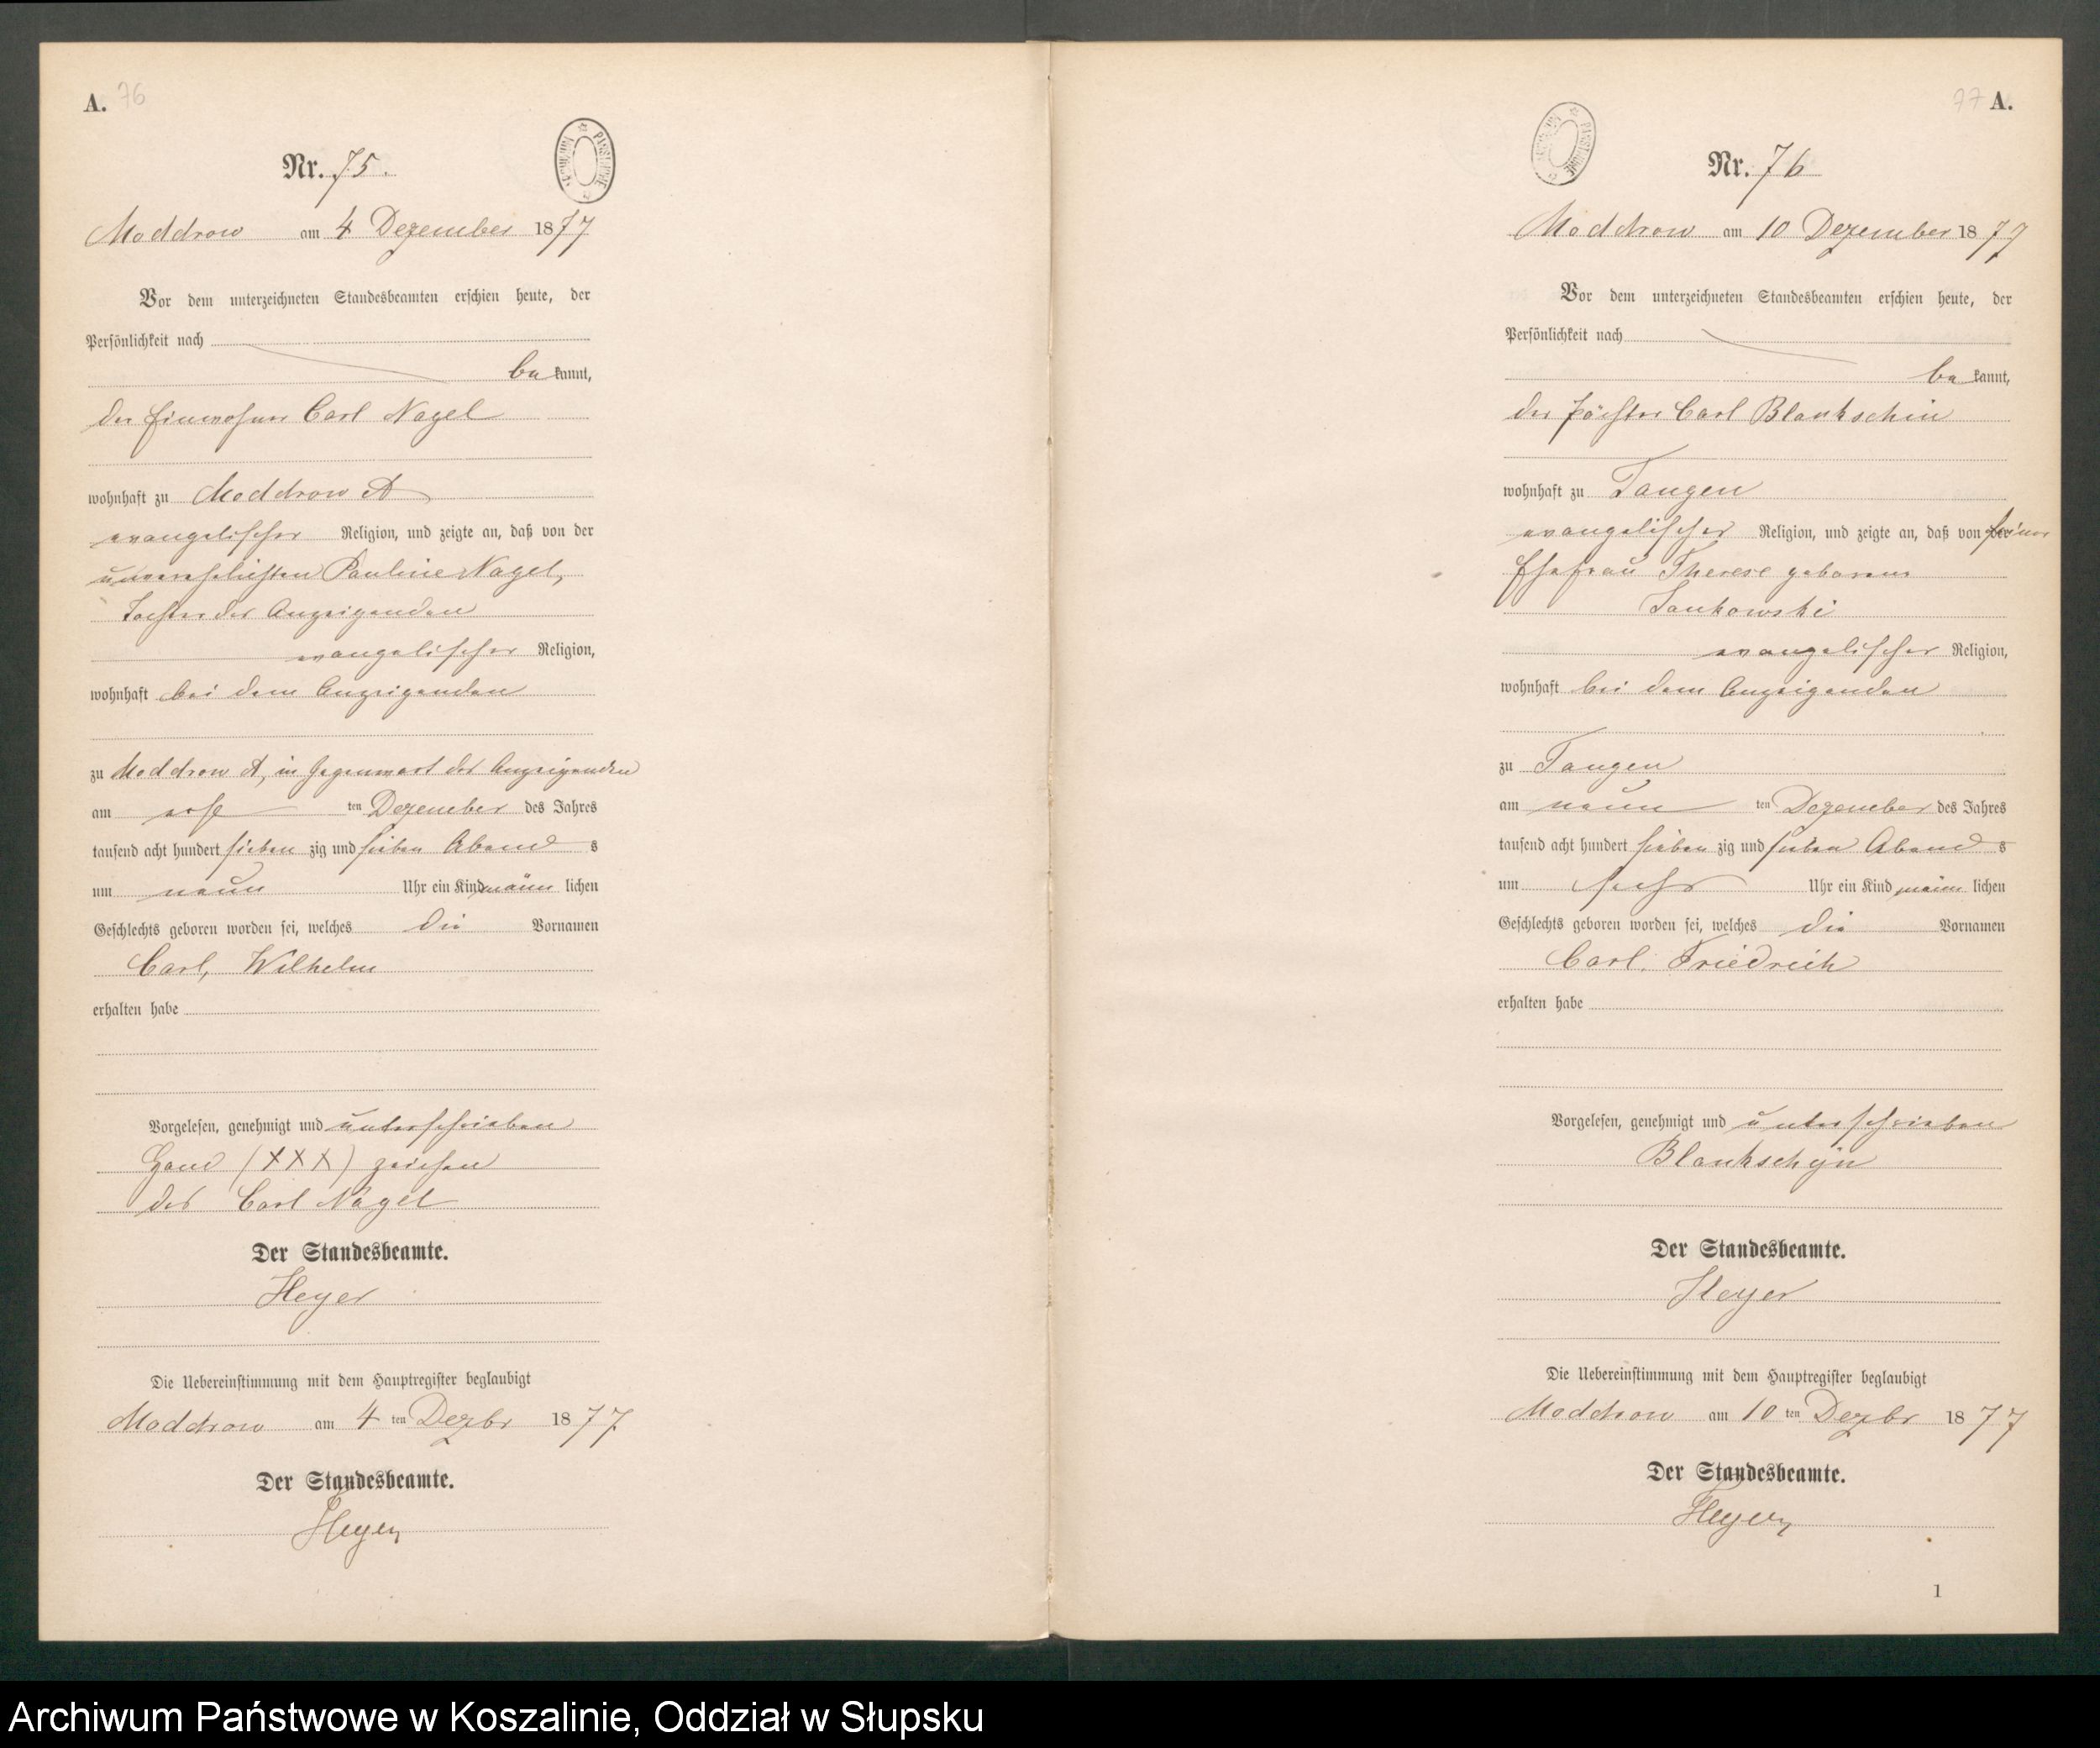 A. 76
Nr. 75.
Moddrow am 4 Dezember 1877
Vor dem unterzeichneten Standesbeamten erschien heute, der
Persönlichkeit nach
be kannt,
der Einwohner Carl Nagel
wohnhaft zu Moddrow A
evangelischer Religion, und zeigte an, daß von der
unverehelichten Pauline Nagel,
Tochter des Anzeigenden
evangelischer Religion,
wohnhaft bei dem Anzeigenden
zu Moddrow A, in Gegenwart des Anzeigenden
am ten Dezember des Jahres
tausend acht hundert sieben zig und sieben Abend s
um neun Uhr ein Kind männ lichen
Geschlechts geboren worden sei, welches die Vornamen
Carl, Wilhelm
erhalten habe
Vorgelesen, genehmigt und unterschrieben
Hand (XXX) zeichen
des Carl Nagel
Der Standesbeamte.
Heyer
Die Uebereinstimmung mit dem Hauptregister beglaubigt
Moddrow am 4 ten Dezbr 1877
Der Standesbeamte.
Heyer
77 A.
Nr. 76
Moddrow am 10 Dezember 1877
Vor dem unterzeichneten Standesbeamten erschien heute, der
Persönlichkeit nach
be kannt,
der Förster Carl Blankschin
wohnhaft zu Tangen
evangelischer Religion, und zeigte an, daß von der seiner
Ehefrau Therese geborene
Jankowski
evangelischer Religion,
wohnhaft bei dem Anzeigenden
zu Tangen
am neun ten Dezember des Jahres
tausend acht hundert sieben zig und sieben Abend s
um sechs Uhr ein Kind männ lichen
Geschlechts geboren worden sei, welches die Vornamen
Carl, Friedrich
erhalten habe
Vorgelesen, genehmigt und unterschrieben
Blankschÿn
Der Standesbeamte.
Heyer
Die Uebereinstimmung mit dem Hauptregister beglaubigt
Moddrow am 10 ten Dezbr 1877
Der Standesbeamte.
Heyer
1
Archiwum Państwowe w Koszalinie, Oddział w Słupsku